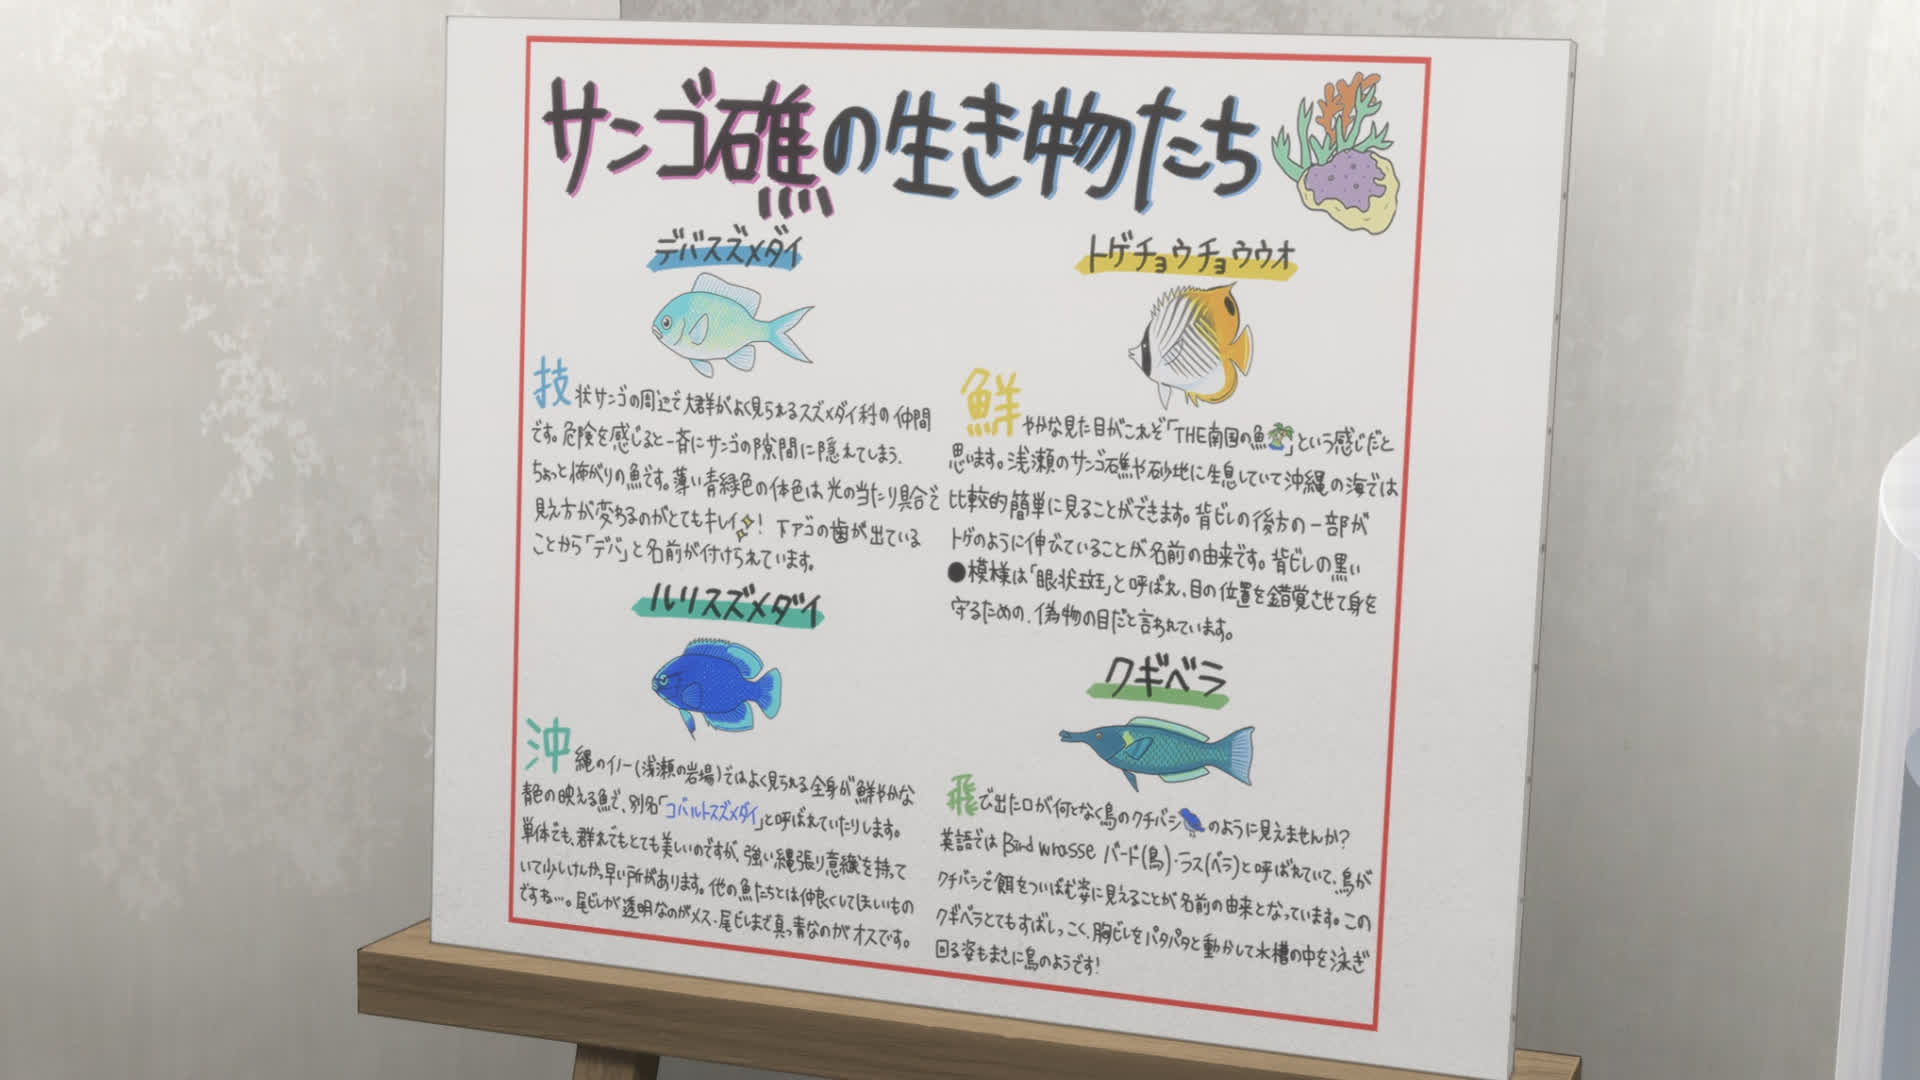 サンゴ礁の生き物たち
デバスズメダイ
技状サンゴの周辺で大群がよく見られるスズメダイ科の仲間
です。危険を感じると一斉にサンゴの隙間に隠れてしまう、
ちょっと怖がりの魚です。薄い青緑色の体色は光の当たり具合で
見え方が変わるのがとてもキレイ!下アゴの歯が出ている
ことから「デバ」と名前が付けられています。
トゲチョウチョウウオ
鮮やかな見た目がこれぞ「THE南国の魚」という感じだと
思います。浅瀬のサンゴ礁や砂地に生息していて沖縄の海では
比較的簡単に見ることができます。背ビレの後方の一部が
トゲのように伸びていることが名前の由来です。背ビレの黒い
●模様は「眼状斑」と呼ばれ、目の位置を錯覚させて身を
守るための、偽物の目だと言われています。
ルリスズメダイ
沖縄のイノー(浅瀬の岩場)ではよく見られる全身が鮮やかな
青色の映える魚で、別名「コバルトスズメダイ」と呼ばれていたりします。
単体でも、群れでもとても美しいのですが、強い縄張り意識を持って
いて少しけんかっ早い所があります。他の魚たちとは仲良くしてほしいもの
ですね…。尾ビレが透明なのがメス・尾ビレまで真っ青なのがオスです。
クギベラ
飛び出た口が何となく鳥のクチバシのように見えませんか?
英語では Bird wrasse バード(鳥)・ラス(ベラ)と呼ばれていて、鳥が
クチバシで餌をついばむ姿に見えることが名前の由来となっています。この
クギベラとてもすばしっこく、胸ビレをパタパタと動かして水槽の中を泳ぎ
回る姿もまさに鳥のようです!